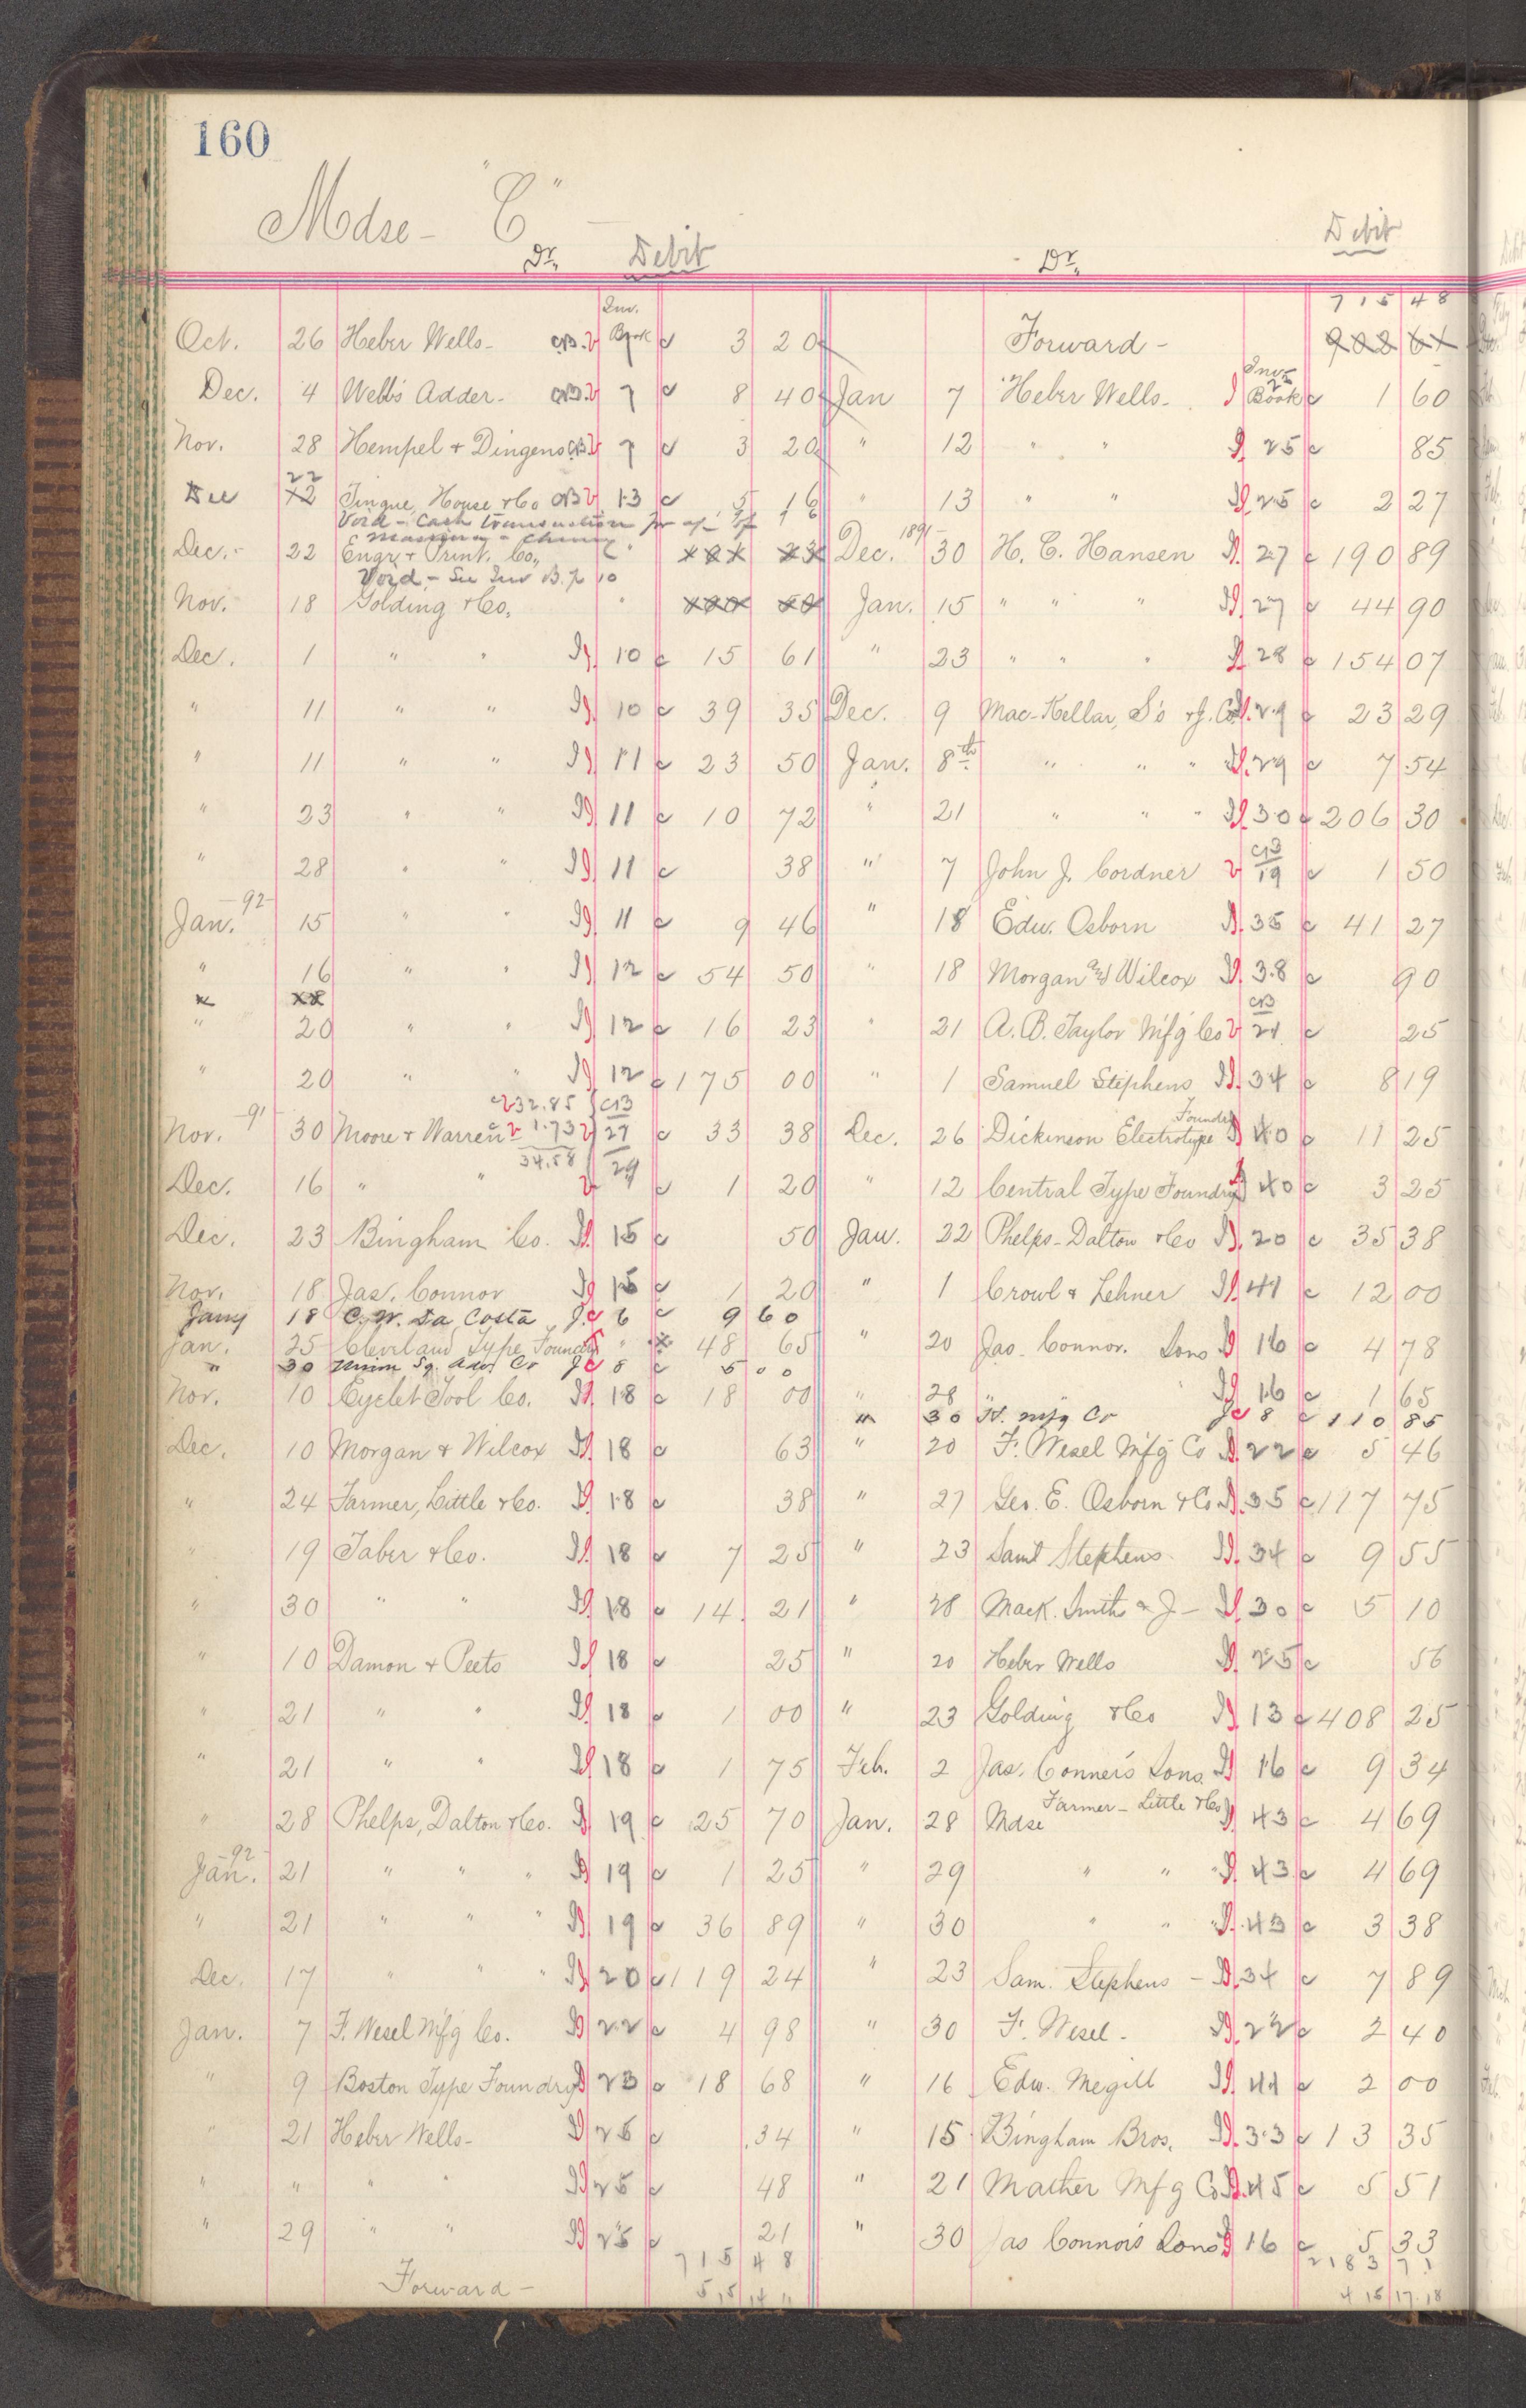 160
Mdse - "C" -
Dr. Debit
Inv.
Oct. 26 Heber Wells - CB. v Book 7 c 3 20
Dec. 4 Webb's Adder - CB. v 7 c 8 40
Nov. 28 Hempel & Dingens CB v 7 c 3 20
22
Dec 12 Tingue, House & Co CB v 13 c 5 16
Void - Cash transaction
Dec. - 22 Engr. & Print. Co.,
Void - See Inv B. p 10
Nov. 18 Golding & Co. "
Dec. 1 " " 10 c 15 61
" 11 " " 10 c 39 35
" 11 " " 11 c 23 50
" 23 " " 11 c 10 72
" 28 " " 11 c 38
Jan. -92- 15 " " 11 c 9 46
" 16 " " 12 c 54 50
" 20 " " 12 c 16 23
" 20 " " 12 c 175 00
v 32.85 } CB
Nov. -91- 30 Moore & Warren v 1.73 v 27 c 33 38
34.58
Dec. 16 " " v 29 c 1 20
Dec. 23 Bingham Co. 15 c 50
Nov. 18 Jas. Connor 15 c 1 20
Jany 18 C. W. Da Costa J. c 6 c 9 60
Jan. 25 Cleveland Type Foundry " 48 65
" 30 Union Sq. Adv Co J c 8 c 5 00
Nov. 10 Eyelet Tool Co. 18 c 18 00
Dec. 10 Morgan & Wilcox 18 c 63
" 24 Farmer, Little & Co. 18 c 38
" 19 Taber & Co. 18 c 7 25
" 30 " " 18 c 14 21
" 10 Damon & Peets 18 c 25
" 21 " " 18 c 1 00
" 21 " " 18 c 1 75
" 28 Phelps, Dalton & Co. 19 c 25 70
Jan. -92- 21 " " " 19 c 1 25
" 21 " " " 19 c 36 89
Dec. 17 " " " 20 c 119 24
Jan. 7 F. Wesel Mfg Co. 22 c 4 98
" 9 Boston Type Foundry 23 c 18 68
" 21 Heber Wells - 25 c .34
" " " " 25 c 48
" 29 " " 25 c 21
715 48
Forward -
Dr. Debit
715 48
Forward -
Jan 7 Heber Wells - Inv Book 25 c 1 60
" 12 " " 25 c 85
" 13 " " 25 c 2 27
Dec. 1891 30 H. C. Hansen 27 c 190 89
Jan. 15 " " " 27 c 44 90
" 23 " " " 28 c 154 07
Dec. 9 Mac-Kellar, S's & J. Co. 29 c 23 29
Jan. 8th " " " 29 c 7 54
" 21 " " " 30 c 206 30
" 7 John J. Cordner v CB 19 c 1 50
" 18 Edw. Osborn 35 c 41 27
" 18 Morgan and Wilcox 38 c 90
" 21 A. B. Taylor Mfg Co v CB 21 c 25
" 1 Samuel Stephens 34 c 8 19
Dec. 26 Dickinson Electrotype Foundry 40 c 11 25
" 12 Central Type Foundry 40 c 3 25
Jan. 22 Phelps-Dalton & Co 20 c 35 38
" 1 Crowl & Lehner 41 c 12 00
" 20 Jas. Connor. Sons 16 c 4 78
" 28 " " 16 c 1 65
" 30 Mfg Co J c 8 c 110 85
" 20 F. Wesel Mfg Co 22 c 5 46
" 27 Geo. E. Osborn & Co 35 c 117 75
" 23 Saml Stephens 34 c 9 55
" 28 Mack. Smiths & J - 30 c 5 10
" 20 Heber Wells 25 c 56
" 23 Golding & Co 13 c 408 25
Feb. 2 Jas. Conner's Sons 16 c 9 34
Jan. 28 Mdse Farmer - Little & Co 43 c 4 69
" 29 " " " 43 c 4 69
" 30 " " " 43 c 3 38
" 23 Sam. Stephens - 34 c 7 89
" 30 F. Wesel - 22 c 2 40
" 16 Edw. Megill 44 c 2 00
" 15 Bingham Bros. 33 c 13 35
" 21 Mather Mfg Co 45 c 5 51
" 30 Jas Connor's Sons 16 c 5 33
2183 71
4 15 17.18